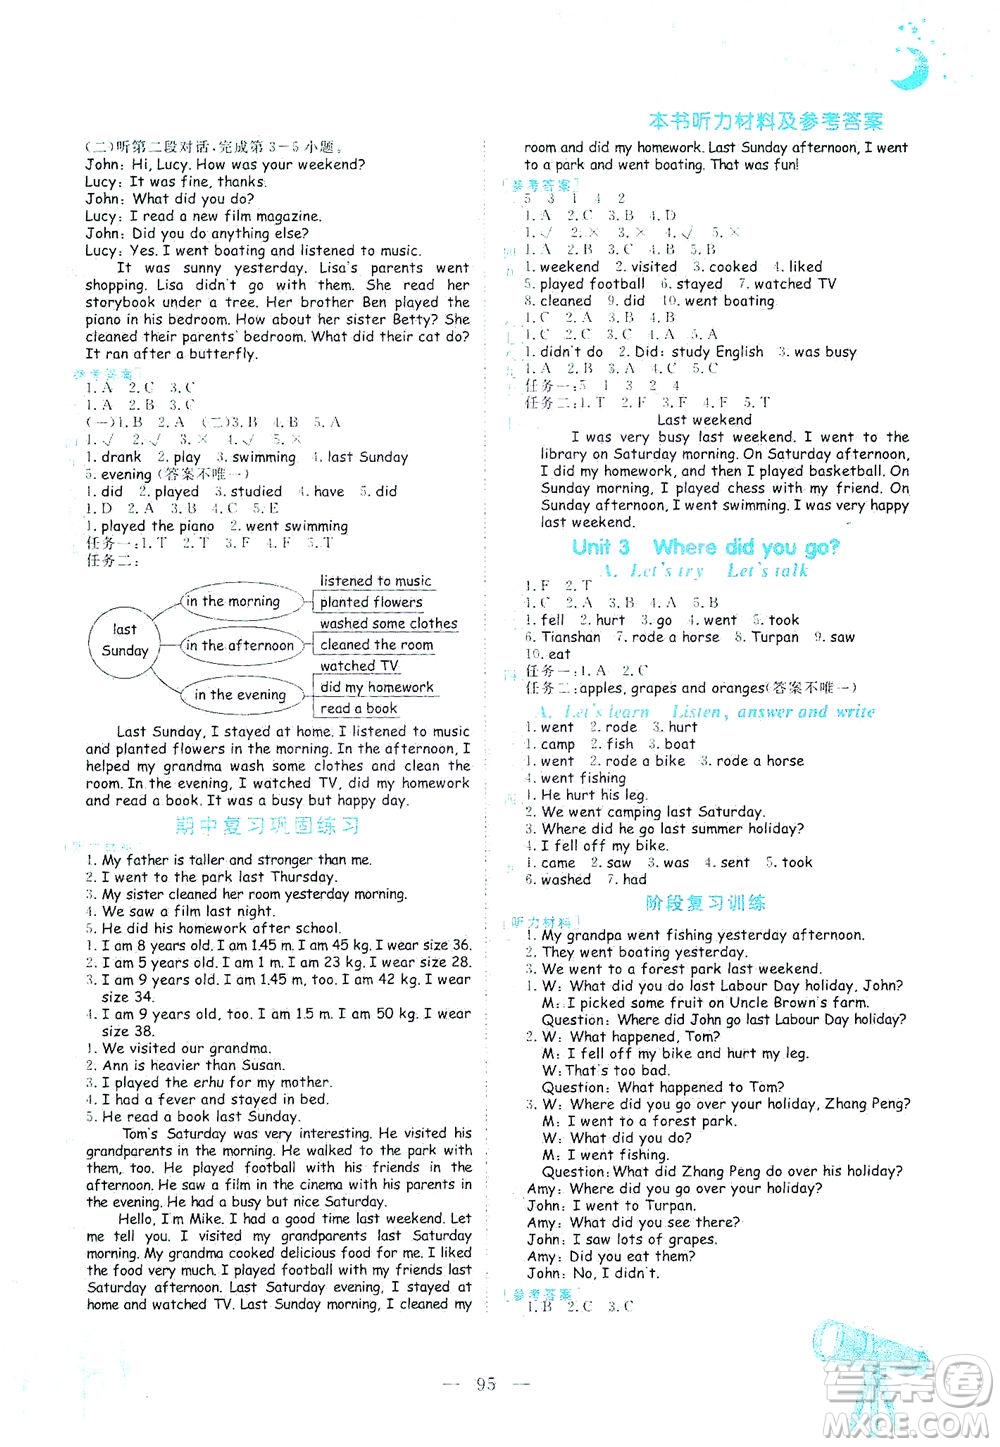 本书听力材料及参考答案
(二)听第二段对话,完成第3-5小题。
John: Hi, Lucy. How was your weekend?
Lucy: It was fine, thanks.
John: What did you do?
Lucy: I read a new film magazine.
John: Did you do anything else?
Lucy: Yes. I went boating and listened to music.
It was sunny yesterday. Lisa's parents went
shopping. Lisa didn't go with them. She read her
storybook under a tree. Her brother Ben played the
piano in his bedroom. How about her sister Betty? She
cleaned their parents' bedroom. What did their cat do?
It ran after a butterfly.
参考答案
1. A 2. C 3. C
1. A 2. B 3. C
(一)1. B 2. A (二)3. B 4. B 5. A
1. √ 2. √ 3. × 4. × 5. √
1. drank 2. play 3. swimming 4. last Sunday
5. evening (答案不唯一)
1. did 2. played 3. studied 4. have 5. did
1. D 2. A 3. B 4. C 5. E
1. played the piano 2. went swimming
任务一:1. T 2. F 3. F 4. T
任务二:
last Sunday
in the morning
listened to music
planted flowers
in the afternoon
washed some clothes
cleaned the room
in the evening
watched TV
did my homework
read a book
Last Sunday, I stayed at home. I listened to music
and planted flowers in the morning. In the afternoon, I
helped my grandma wash some clothes and clean the
room. In the evening, I watched TV, did my homework
and read a book. It was a busy but happy day.
期中复习巩固练习
1. My father is taller and stronger than me.
2. I went to the park last Thursday.
3. My sister cleaned her room yesterday morning.
4. We saw a film last night.
5. He did his homework after school.
1. I am 8 years old. I am 1.45 m. I am 43 kg. I wear size 36.
2. I am 6 years old. I am 1 m. I am 23 kg. I wear size 28.
3. I am 9 years old. I am 1.45 m. I am 42 kg. I wear
size 34.
4. I am 9 years old, too. I am 1.5 m. I am 50 kg. I wear
size 38.
1. We visited our grandma.
2. Ann is heavier than Susan.
3. I played the erhu for my mother.
4. I had a fever and stayed in bed.
5. He read a book last Sunday.
Tom's Saturday was very interesting. He visited his
grandparents in the morning. He walked to the park with
them, too. He played football with his friends in the
afternoon. He saw a film in the cinema with his parents in
the evening. He had a busy but nice Saturday.
Hello, I'm Mike. I had a good time last weekend. Let
me tell you. I visited my grandparents last Saturday
morning. My grandma cooked delicious food for me. I liked
the food very much. I played football with my friends last
Saturday afternoon. Last Saturday evening, I stayed at
home and watched TV. Last Sunday morning, I cleaned my
room and did my homework. Last Sunday afternoon, I went
to a park and went boating. That was fun!
参考答案
5 3 1 4 2
1. A 2. C 3. B 4. D
1. √ 2. × 3. × 4. √ 5. ×
1. A 2. B 3. C 4. A 5. B
1. weekend 2. visited 3. cooked 4. liked
5. played football 6. stayed 7. watched TV
8. cleaned 9. did 10. went boating
1. C 2. A 3. B 4. C 5. C
1. didn't do 2. Did; study English 3. was busy
任务一:5 1 3 2 4
任务二:1. T 2. F 3. F 4. F 5. T
Last weekend
I was very busy last weekend. I went to the
library on Saturday morning. On Saturday afternoon,
I did my homework, and then I played basketball. On
Sunday morning, I played chess with my friend. On
Sunday afternoon, I went swimming. I was very happy
last weekend.
Unit 3 Where did you go?
A. Let's try Let's talk
1. F 2. T
1. C 2. B 3. A 4. A 5. B
1. fell 2. hurt 3. go 4. went 5. took
6. Tianshan 7. rode a horse 8. Turpan 9. saw
10. eat
任务一:1. A 2. C
任务二:apples, grapes and oranges(答案不唯一)
A. Let's learn Listen, answer and write
1. went 2. rode 3. hurt
1. camp 2. fish 3. boat
1. went 2. rode a bike 3. rode a horse
4. went fishing
1. He hurt his leg.
2. We went camping last Saturday.
3. Where did he go last summer holiday?
4. I fell off my bike.
1. came 2. saw 3. was 4. sent 5. took
6. washed 7. had
阶段复习训练
听力材料
1. My grandpa went fishing yesterday afternoon.
2. They went boating yesterday.
3. We went to a forest park last weekend.
1. W: What did you do last Labour Day holiday, John?
M: I picked some fruit on Uncle Brown's farm.
Question: Where did John go last Labour Day holiday?
2. W: What happened, Tom?
M: I fell off my bike and hurt my leg.
W: That's too bad.
Question: What happened to Tom?
3. W: Where did you go over your holiday, Zhang Peng?
M: I went to a forest park.
W: What did you do?
M: I went fishing.
Question: What did Zhang Peng do over his holiday?
Amy: Where did you go over your holiday?
John: I went to Turpan.
Amy: What did you see there?
John: I saw lots of grapes.
Amy: Did you eat them?
John: No, I didn't.
参考答案
1. B 2. C 3. C
— 95 —
答案圈
MXQE.COM